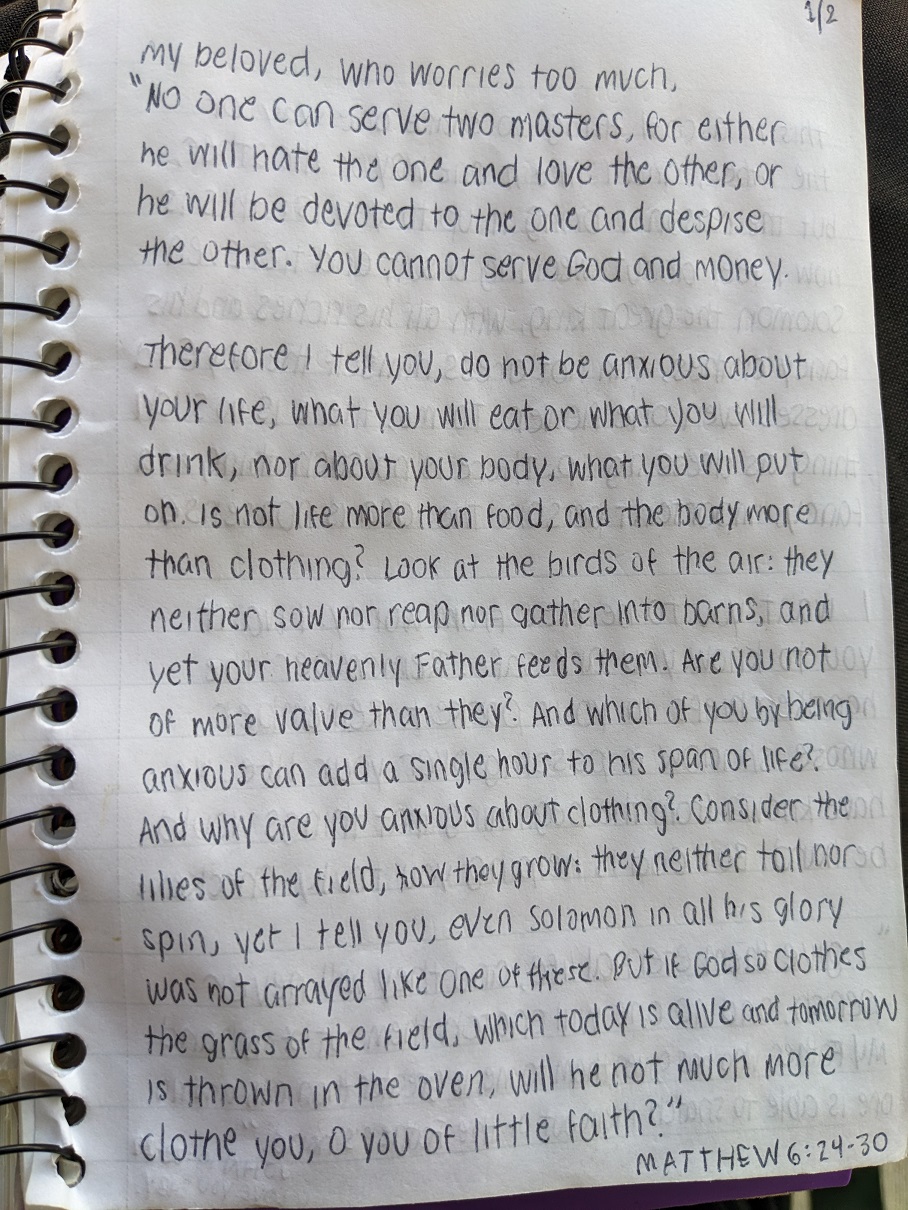 1/2
my beloved, who worries too much,
"No one can serve two masters, for either
he will hate the one and love the other, or
he will be devoted to the one and despise
the other. You cannot serve God and money.
Therefore I tell you, do not be anxious about
your life, what you will eat or what you will
drink, nor about your body, what you will put
on. Is not life more than food, and the body more
than clothing? Look at the birds of the air: they
neither sow nor reap nor gather into barns, and
yet your heavenly Father feeds them. Are you not
of more value than they? And which of you by being
anxious can add a single hour to his span of life?
And why are you anxious about clothing? Consider the
lilies of the field, how they grow: they neither toil nor
spin, yet I tell you, even Solomon in all his glory
was not arrayed like one of these. But if God so clothes
the grass of the field, which today is alive and tomorrow
is thrown in the oven, will he not much more
clothe you, O you of little faith?"
MATTHEW 6:24-30